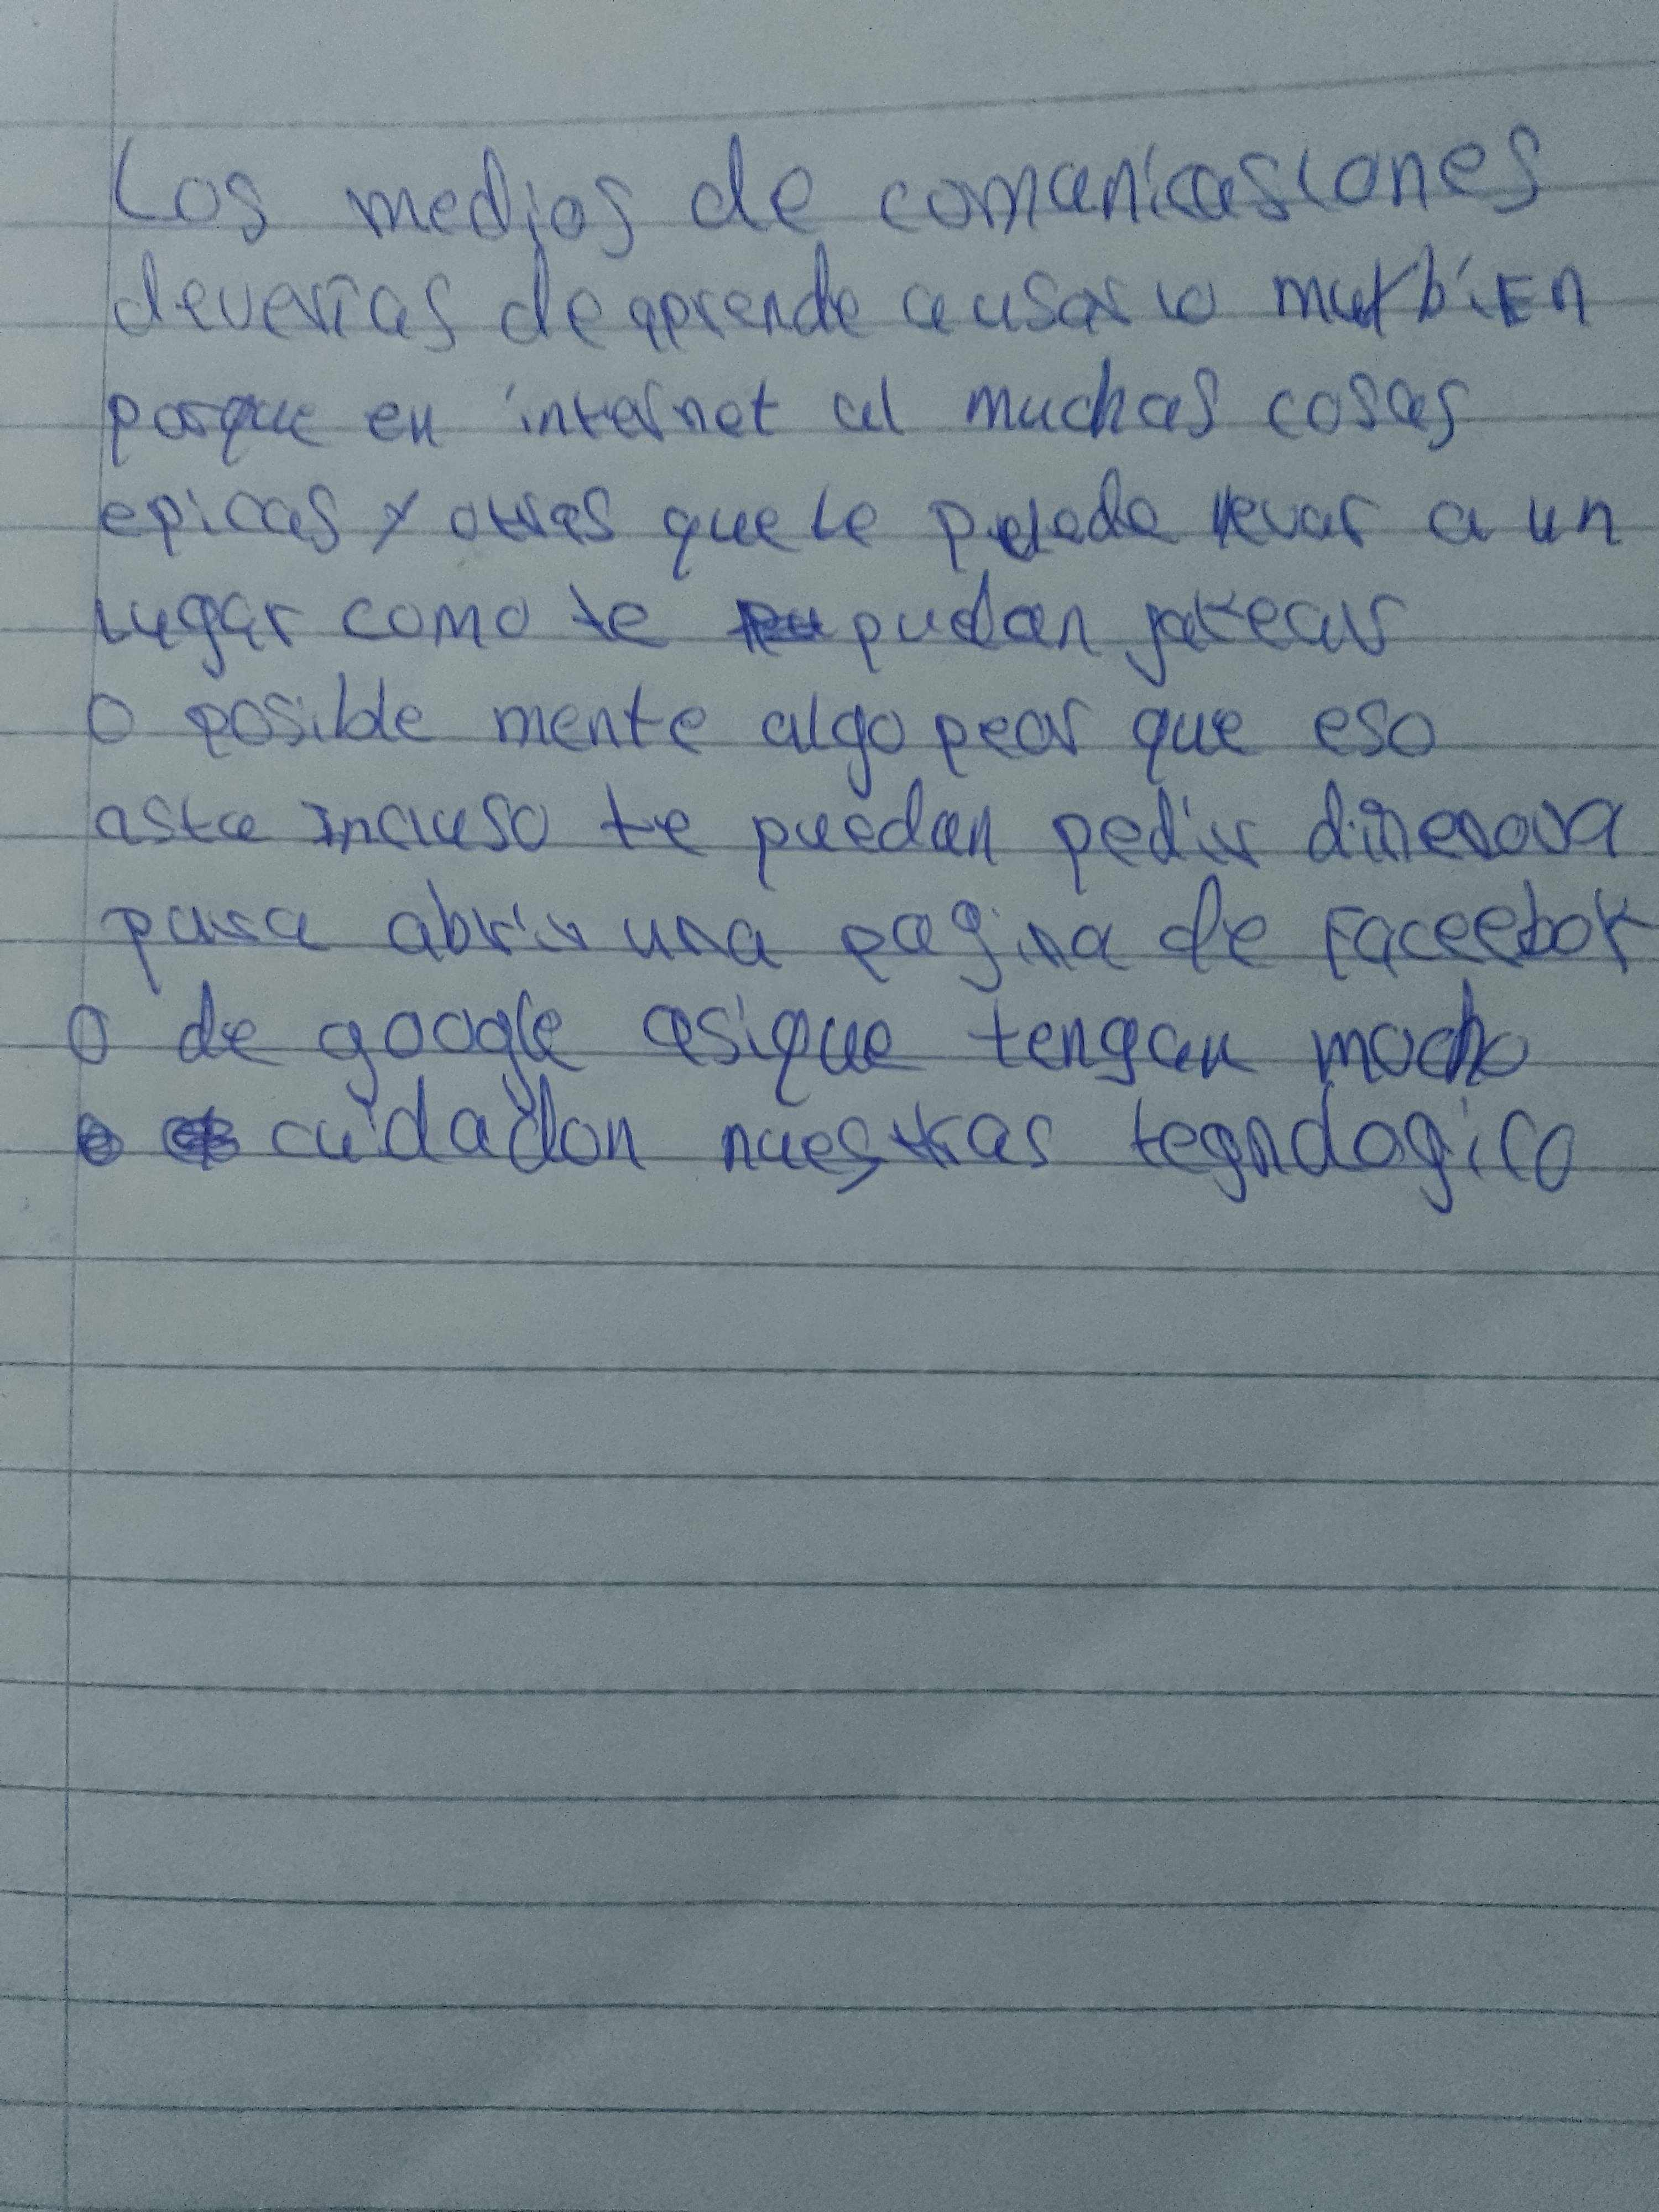 Los medios de comunicasiones
deverias de aprende a usar lo muy biEn
porque en internet al muchas cosas
epicas y otras que le puede llevar a un
lugar como te pudan jakear
o posible mente algo pear que eso
asta incluso te puedan pedir dinerova
para abrir una pagina de Faceebok
o de google asique tengan mocho
cuidadon nuestras tegnologico